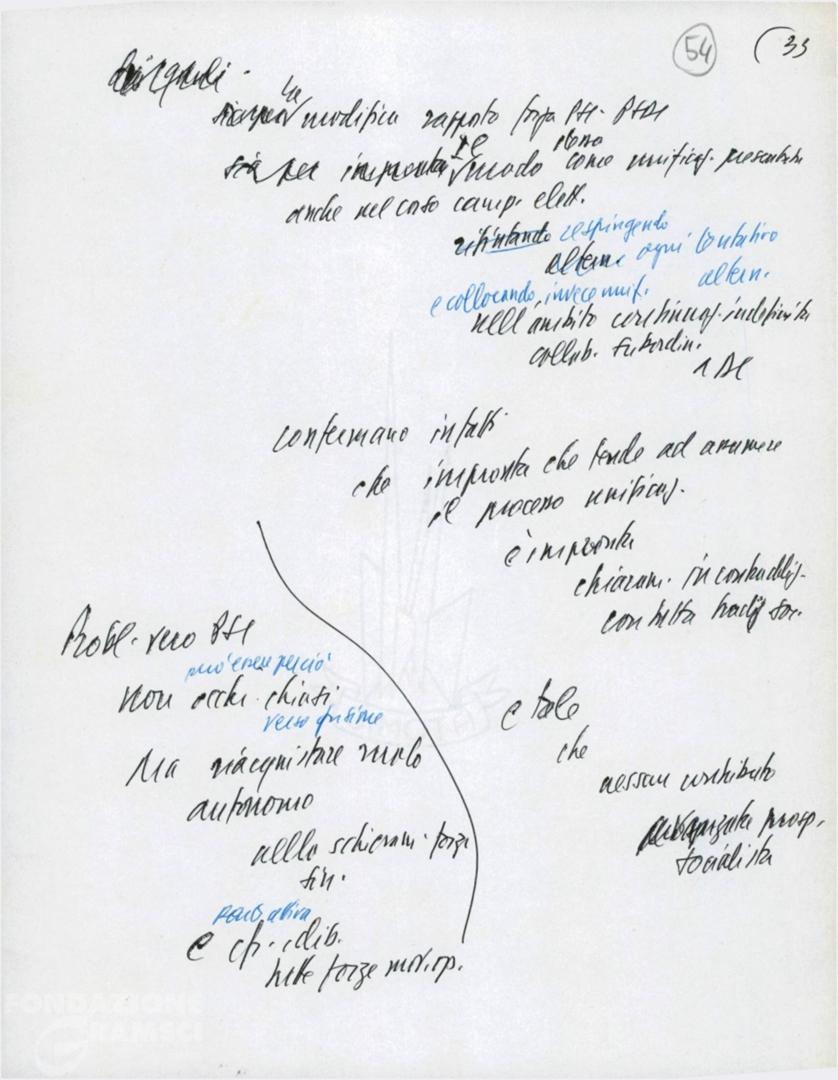 54 (33
dirigenti.
sia per la modifica rapporto forza PSI-PSDI
sia per impronta e modo stesso come unificaz. presentata
anche nel corso camp. elett.
rifiutando respingendo
altern. ogni tentativo
altern.
e collocando invece unif.
nell'ambito continuaz. indefinita
collab. subordin.
a DC
confermano infatti
che impronta che tende ad assumere
il processo unificaz.
è impronta
chiaram. in contraddiz.
con tutta tradiz. soc.
Probl. vero PSI
può essere perciò
non occhi chiusi
verso fusione
Ma riacquistare ruolo
autonomo
nello schieram. forze
sin.
e
tutte forze mov. op.
e tale
che
nessun contributo
avanzata prosp.
socialista
FONDAZIONE
GRAMSCI